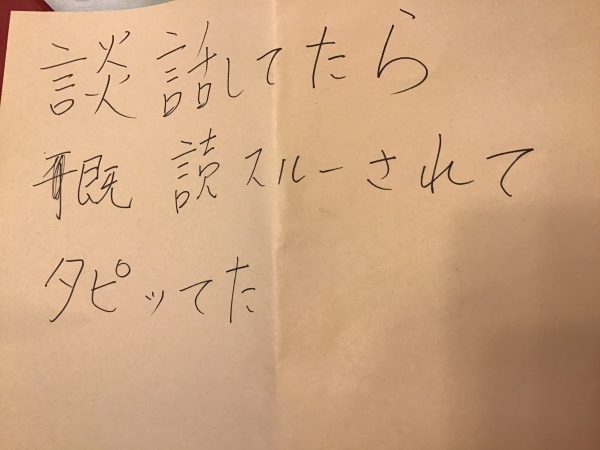 談話してたら
既読スルーされて
タピッてた